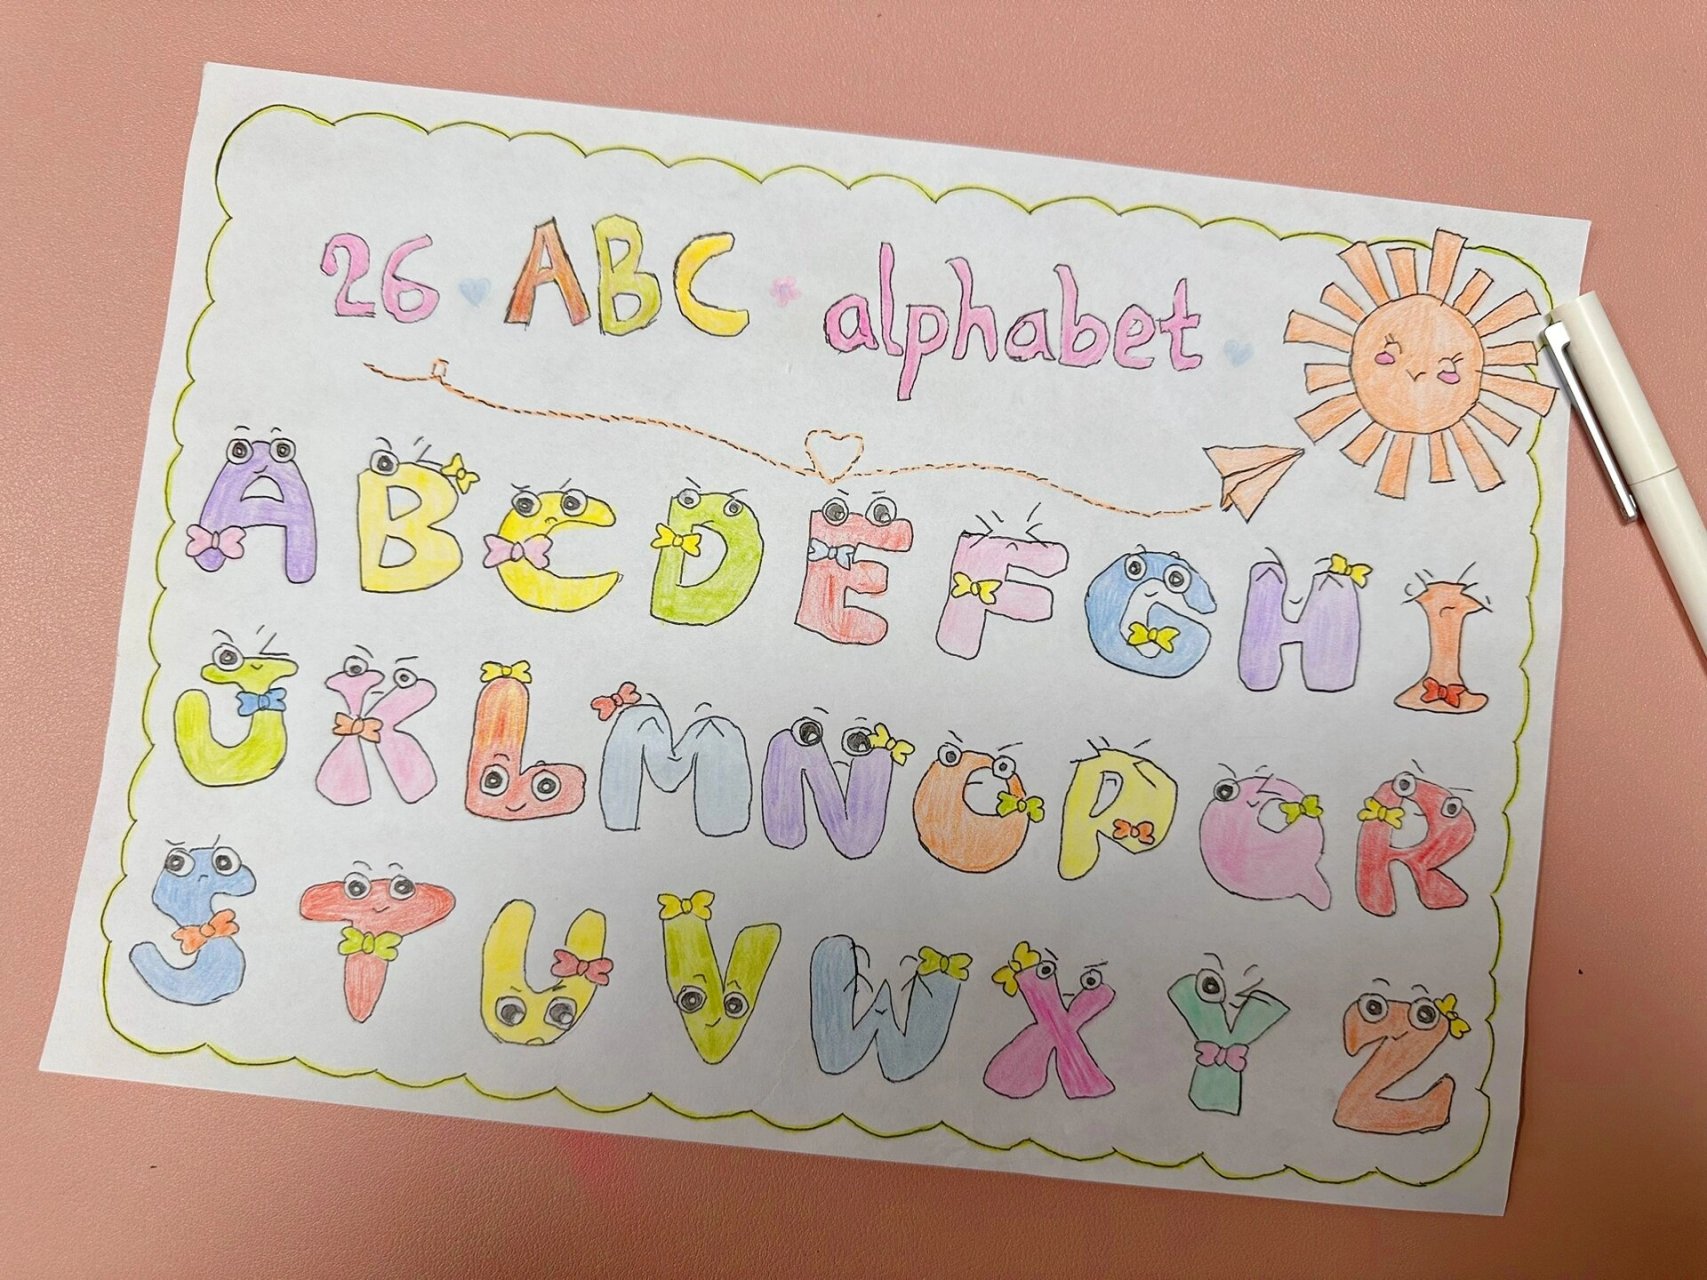 26 ABC alphabet
A B C D E F G H I
J K L M N O P Q R
S T U V W X Y Z